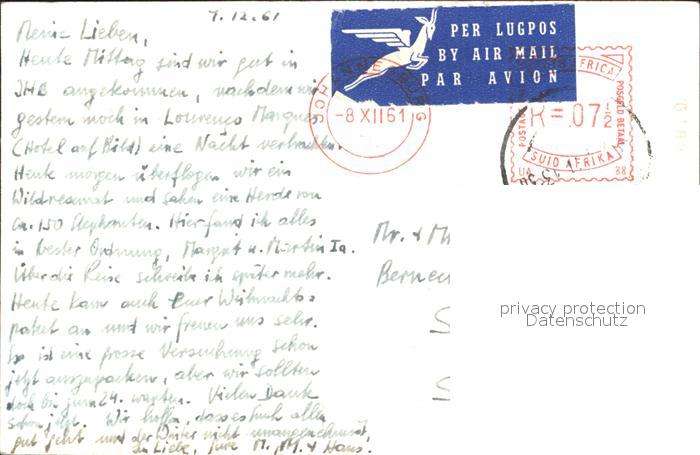 7.12.61
Meine Lieben,
Heute Mittag sind wir gut in
JHB angekommen, nachdem wir
gestern noch in Lourenco Marques
(Hotel auf Bild) eine Nacht verbrachten.
Heute morgen überflogen wir ein
Wildreservat und sahen eine Herde von
ca. 150 Elephanten. Hier fand ich alles
in bester Ordnung, Margrit u. Martin Ia.
Über die Reise schreib ich später mehr.
Heute kam auch Euer Weihnachts-
paket an und wir freuen uns sehr.
Es ist eine grosse Versuchung schon
jetzt auszupacken, aber wir sollten
doch bis zum 24. warten. Vielen Dank
schon jetzt. Wir hoffen, dass es Euch allen
gut geht und der Winter nicht unangenehm ist,
In Liebe, Eure M., M. & Hans.
PER LUGPOS
BY AIR MAIL
PAR AVION
-8 XII 61
AFRICA
POSTAGE
POSGELD BETAAL
R=.07½
SUID AFRIKA
UA 88
Mr. & M
Bernec
S
S
privacy protection
Datenschutz